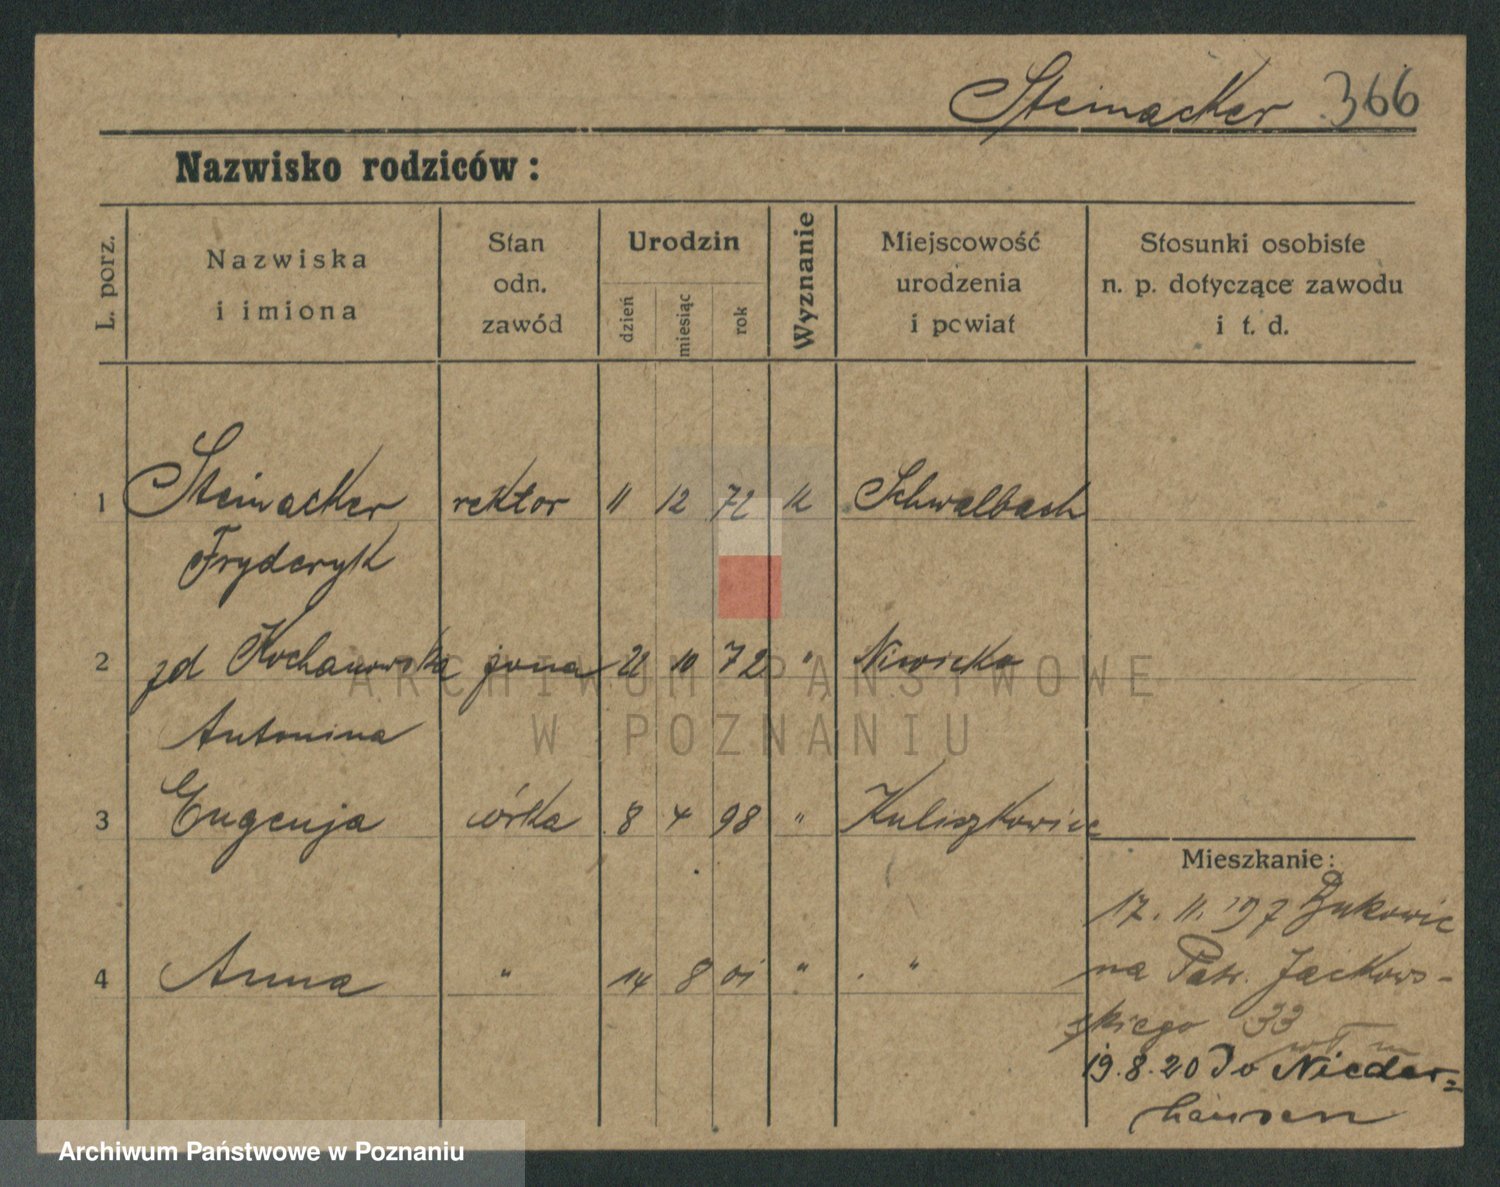 Steinacker 366
Nazwisko rodziców :
L. porz.
Nazwiska
i imiona
Stan
odn.
zawód
Urodzin
dzień
miesiąc
rok
Wyznanie
Miejscowość
urodzenia
i powiat
Stosunki osobiste
n. p. dotyczące zawodu
i t. d.
1 Steinacker rektor 11 12 72 k Schwalbach
Fryderyk
2 zd Kochanowska żona 22 10 72 " Niwicka
Antonina
3 Eugenja córka 8 4 98 " Kuliszkowice
Mieszkanie:
17. 11. 197 Bukowic
4 Anna " 14 8 01 " "
na Patr. Jackow-
skiego 33
19.8.20 Do Nieder=
hausen
ARCHIWUM PAŃSTWOWE
W POZNANIU
Archiwum Państwowe w Poznaniu